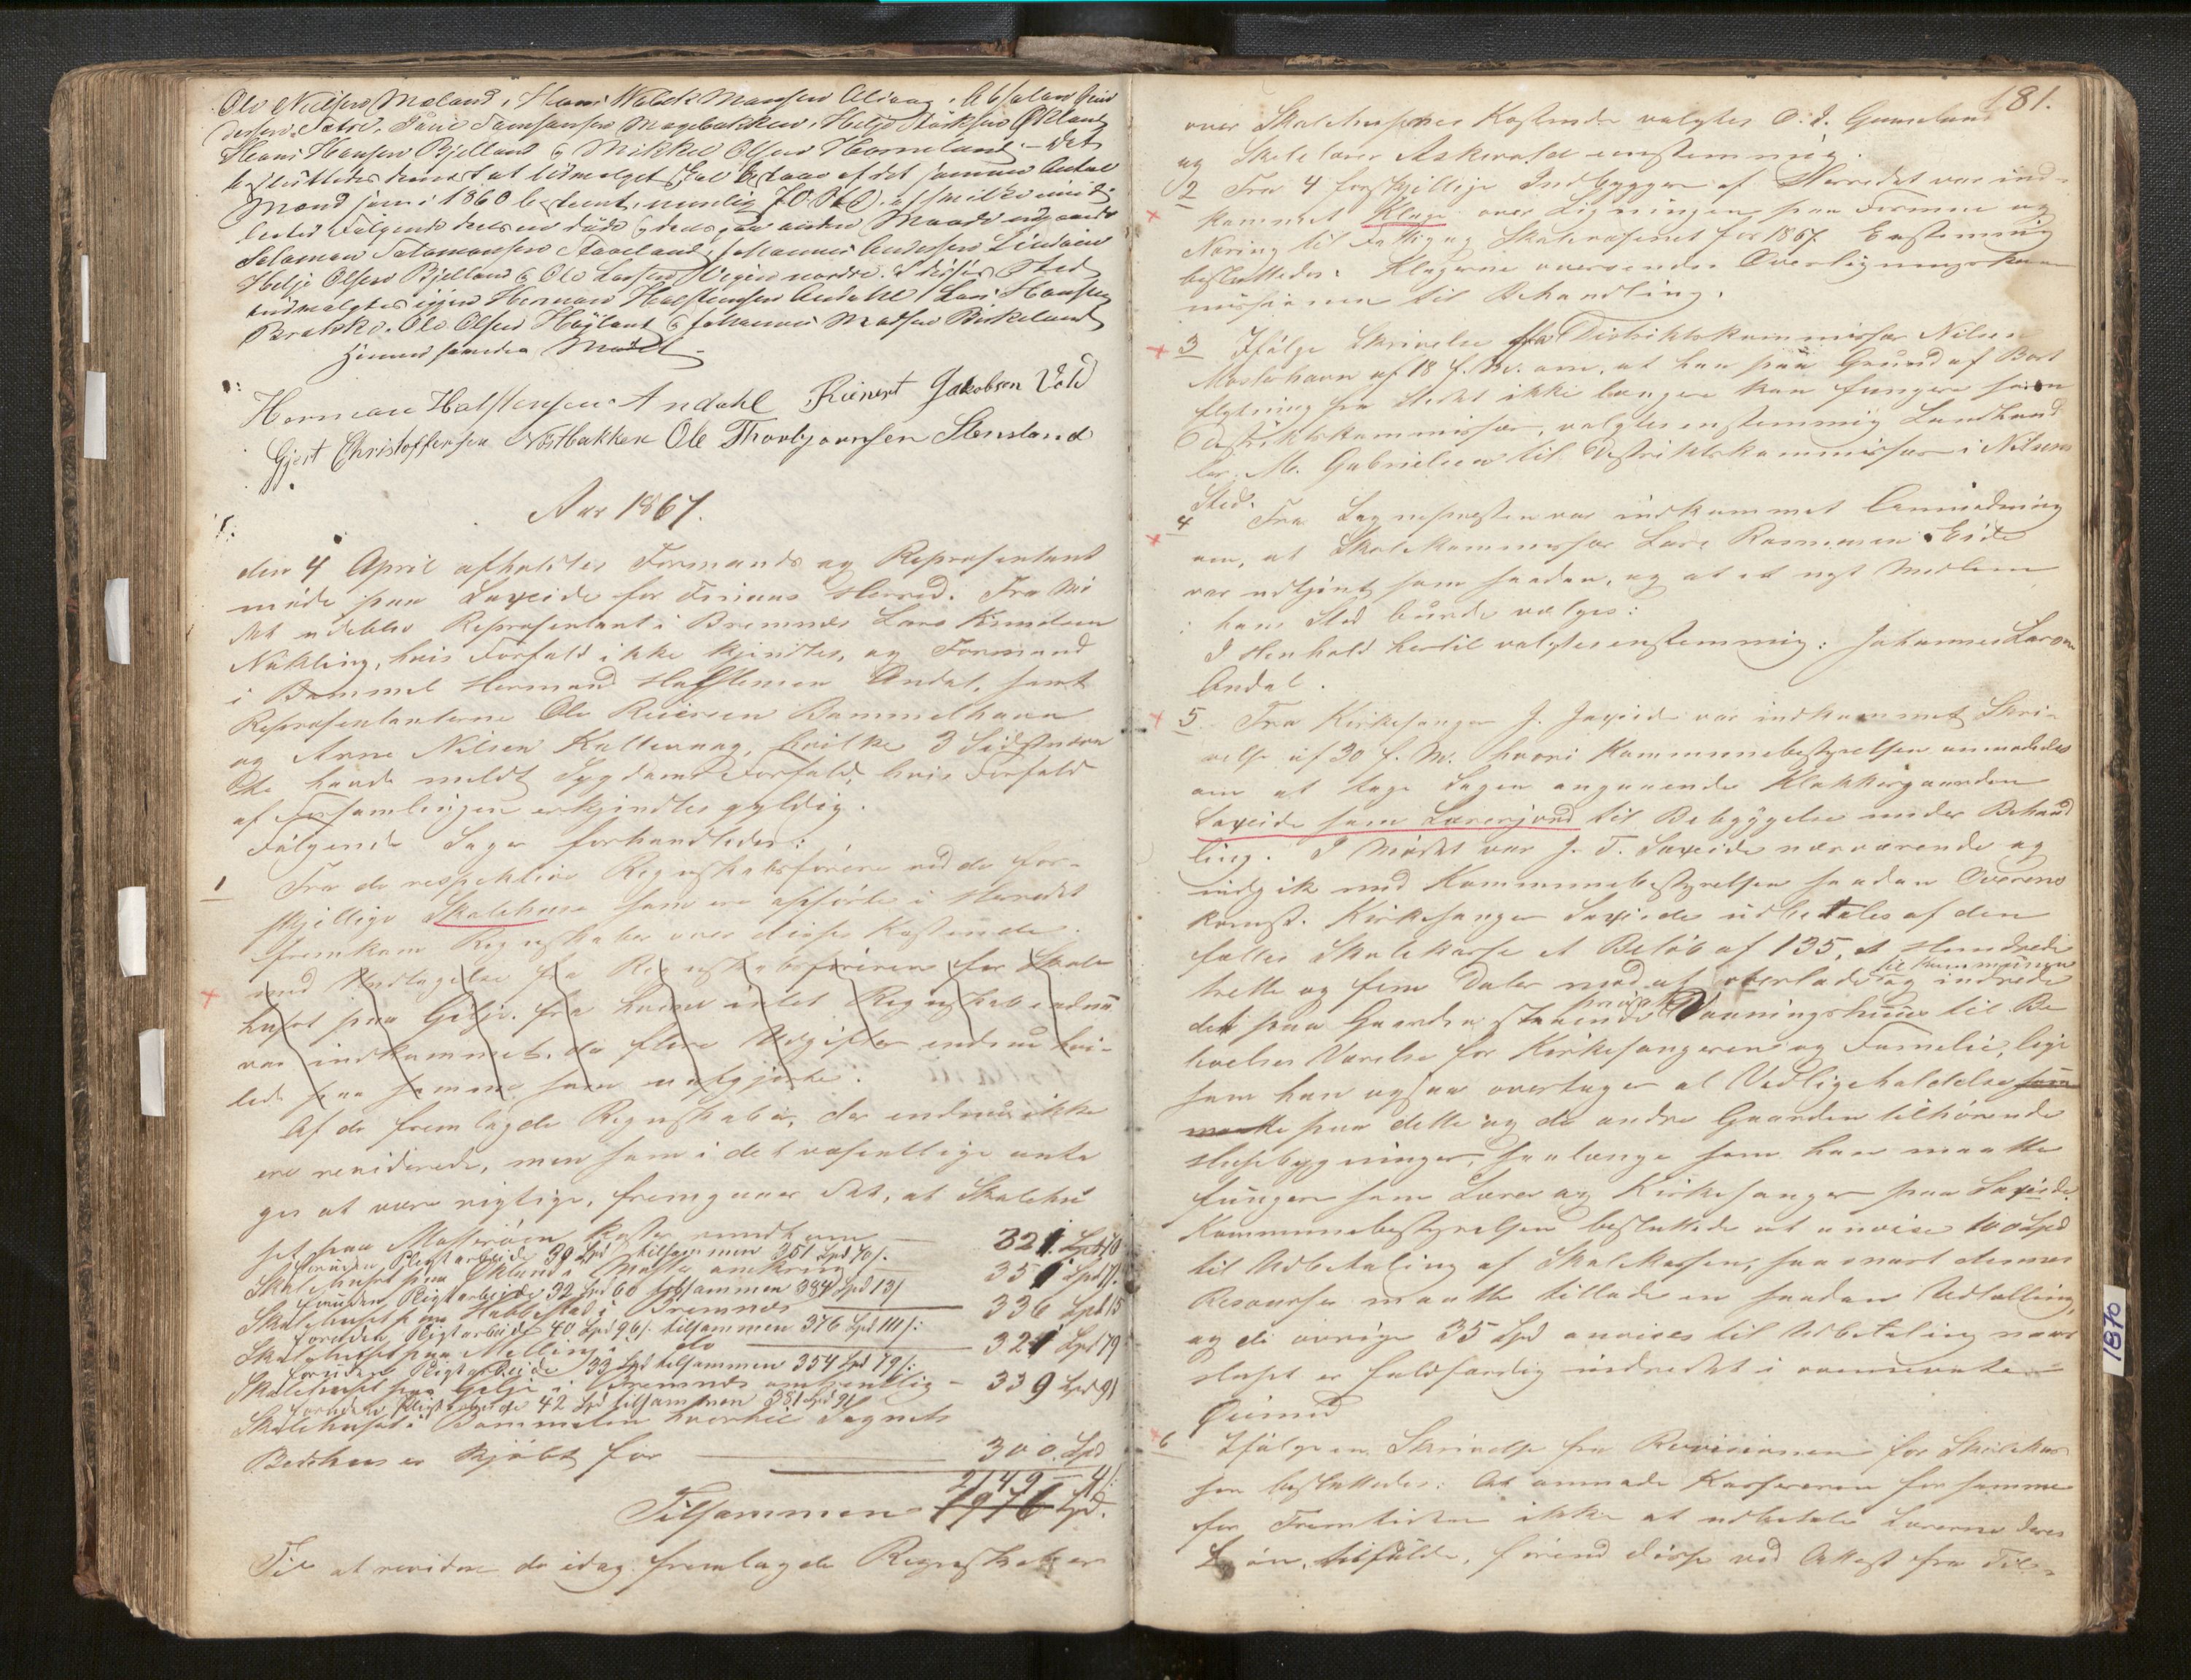 Ole Nielsen Mæland, Hans Walek Monsen Aliaag, Absalon
Sætre, Tamsansen Mogebakken, Helje Størksen Økland,
Hans Hansen Bjelland & Mikkel Olsen Horneland. - Det
besluttedes dernæst at Udvalget skal bestaae af det samme Antal
Mænd som i 1860 bestemt, nemlig 70
Følgende deels er døde & deels paa anden Maade
Salaman Salamonsen Stavland, Johannes Andersen Lindøen
Helje Olsen Bjelland & Ole Larsen Vespe nordre. I disses Sted
udvalgtes igjen Herman Halstensen Andahl, Lars Hansen
Bratske, Ole Olsen Høyland & Johannes Madsen Birkeland
Herman Halstensen Andahl Reinert Jakobsen Vold
Gjert Christoffersen Nøstbakken Ole Thorbjørnsen Stensland
Aar 1867.
den 4 April afholdtes Formands og Repræsentant
møde paa Laxeide for Finnaas Herred. Fra Mø
det udeblev Repræsentant i Bremnes Lars Knudsen
Nækling, hvis Forfald ikke kjendtes, og Formand
i Bømmel Hermand Halstensen Andal, samt
Repræsentanterne Ole Reiersen Bømmelhavn
og Arne Nilsen Kallevaag, hvilke 3 Sidstnævn
te havde meldt Sygdoms Forfald, hvis Forfald
af Forsamlingen erkjendtes gyldig.
Følgende Sager forhandledes:
1 Fra de respektive Regnskabsførere ved de for-
skjellige Skolehuse som ere opførte i Herredet
fremkom Regnskaber over disses Kostende.
med Undtagelse fra Regnskabsføreren for Skole
huset paa Gilje, fra hvem intet Regnskab endnu
var indkommet, da flere Udgifter endnu hvi-
lede paa samme som uafgjorte.
Af de fremlagde Regnskaber, der endnu ikke
ere reviderede, men som i det væsentlige anta
ges at være rigtige, fremgaaer det, at Skolehu
set paa Mosterøen koster rundt om — 321 Spd 70
foruden Pligtarbeide 30 Spd tilsammen 351 Spd 70 s:
Skolehuset paa Økland i Moster omkring — 351 Spd 71
foruden Pligtarbeide 32 Spd 60 tilsammen 384 Spd 13 s
Skolehuset paa Hallestad i Bremnes — 336 Spd 15
foruden Pligtarbeide 40 Spd 96 s: tilsammen 376 Spd 111 s:
Skolehuset paa Melling i do — 321 Spd 79
foruden Pligtarbeide 33 Spd tilsammen 354 Spd 79 s:
Skolehuset paa Gilje i Bremnes omtrentlig — 339 Spd 91
foruden Pligtarbeide 42 Spd tilsammen 381 Spd 91
Skolehuset i Bømmelen hvortil Sognets
Bedehus er kjøbt for — 300 Spd
2149 - 4 s:
Tilsammen 1976 Spd.
Til at revidere de idag fremlagde Regnskaber
181.
over Skolehusenes Kostende valgtes O. I. Gunneland
og Skolelærer Askevold eenstemmig.
2 Fra 4 forskjellige Indbyggere af Herredet var ind-
kommet Klage over Ligningen paa Formue og
Næring til Fattig og Skolevæsenet for 1867. Enstemmig
besluttedes: Klagerne oversendes Overligningskom
missionen til Behandling.
3 Ifølge Skrivelse fra Distriktskommissær Nilsen
Mosterhavn af 18 f. M. om, at han paa Grund af Bort
flytning fra Stedet ikke længere kan fungere som
Distriktskommissær, valgtes enstemmig Landhand
ler M. Gabrielsen til Distriktskommissær i Nilsens
Sted.
4 Fra Sognepræsten var indkommet Anmodning
om, at Skolekommissær Lars Rasmussen Eide
var udtjent som saadan, og at et nyt Medlem
i hans Sted burde vælges:
I Henhold hertil valgtes enstemmig: Johannes Larsen
Andal.
5 Fra Kirkesanger J. Laxeide var indkommet Skri-
velse af 30 f. M. hvori Kommunebestyrelsen anmodedes
om at tage Sagen angaaende Klokkergaarden
Laxeide som Lærerjord til Bebyggelse under Behand
ling. I Mødet var J. T. Laxeide nærværende og
indgik med Kommunebestyrelsen saadan Overens
komst. Kirkesanger Laxeide udbetales af den
fælles Skolekasse et Beløb af 135, et Hundrede
tretti og fem Daler mod at overlade til Kommunen og indrede
det paa Gaarden staaende private Vaaningshuus til Be
kvemt Værelse for Kirkesangeren og Familie, lige
som han ogsaa overtager al Vedligeholdelse som
maatte paa dette og de andre Gaarden tilhørende
Husebygninger, saalænge som han maatte
fungere som Lærer og Kirkesanger paa Laxeide.
Kommunebestyrelsen besluttede at anvise 100 Spd
til Udbetaling af Skolekassen, saasnart dennes
Resourser maatte tillade en saadan Udtælling,
og de øvrige 35 Spd anvises til Udbetaling naar
Huset er fuldfærdig indredet i ovennævnte
Øiemed
6 Ifølge en Skrivelse fra Revisionen for Skolekas
sen besluttedes: At anmode Kassereren for samme
for Fremtiden ikke at udbetale Lærerne deres
Løn tilfulde, førend disse ved Attest fra Til-
1870